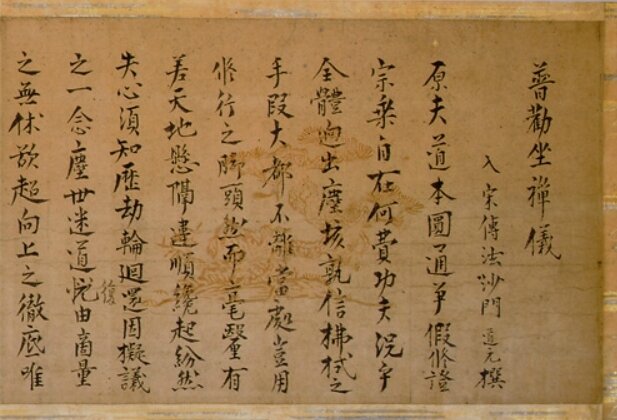 普勸坐禪儀
入宋傳法沙門 道元 撰
原夫道本圓通爭假修證
宗乘自在何費功夫況乎
全體逈出塵垓孰信拂拭之
手段大都不離當處豈用
修行之脚頭然而毫釐有
差天地懸隔違順纔起紛然
失心須知歷劫輪迴還因擬議
復
之一念塵世迷道由商量
之無休欲超向上之徹底唯